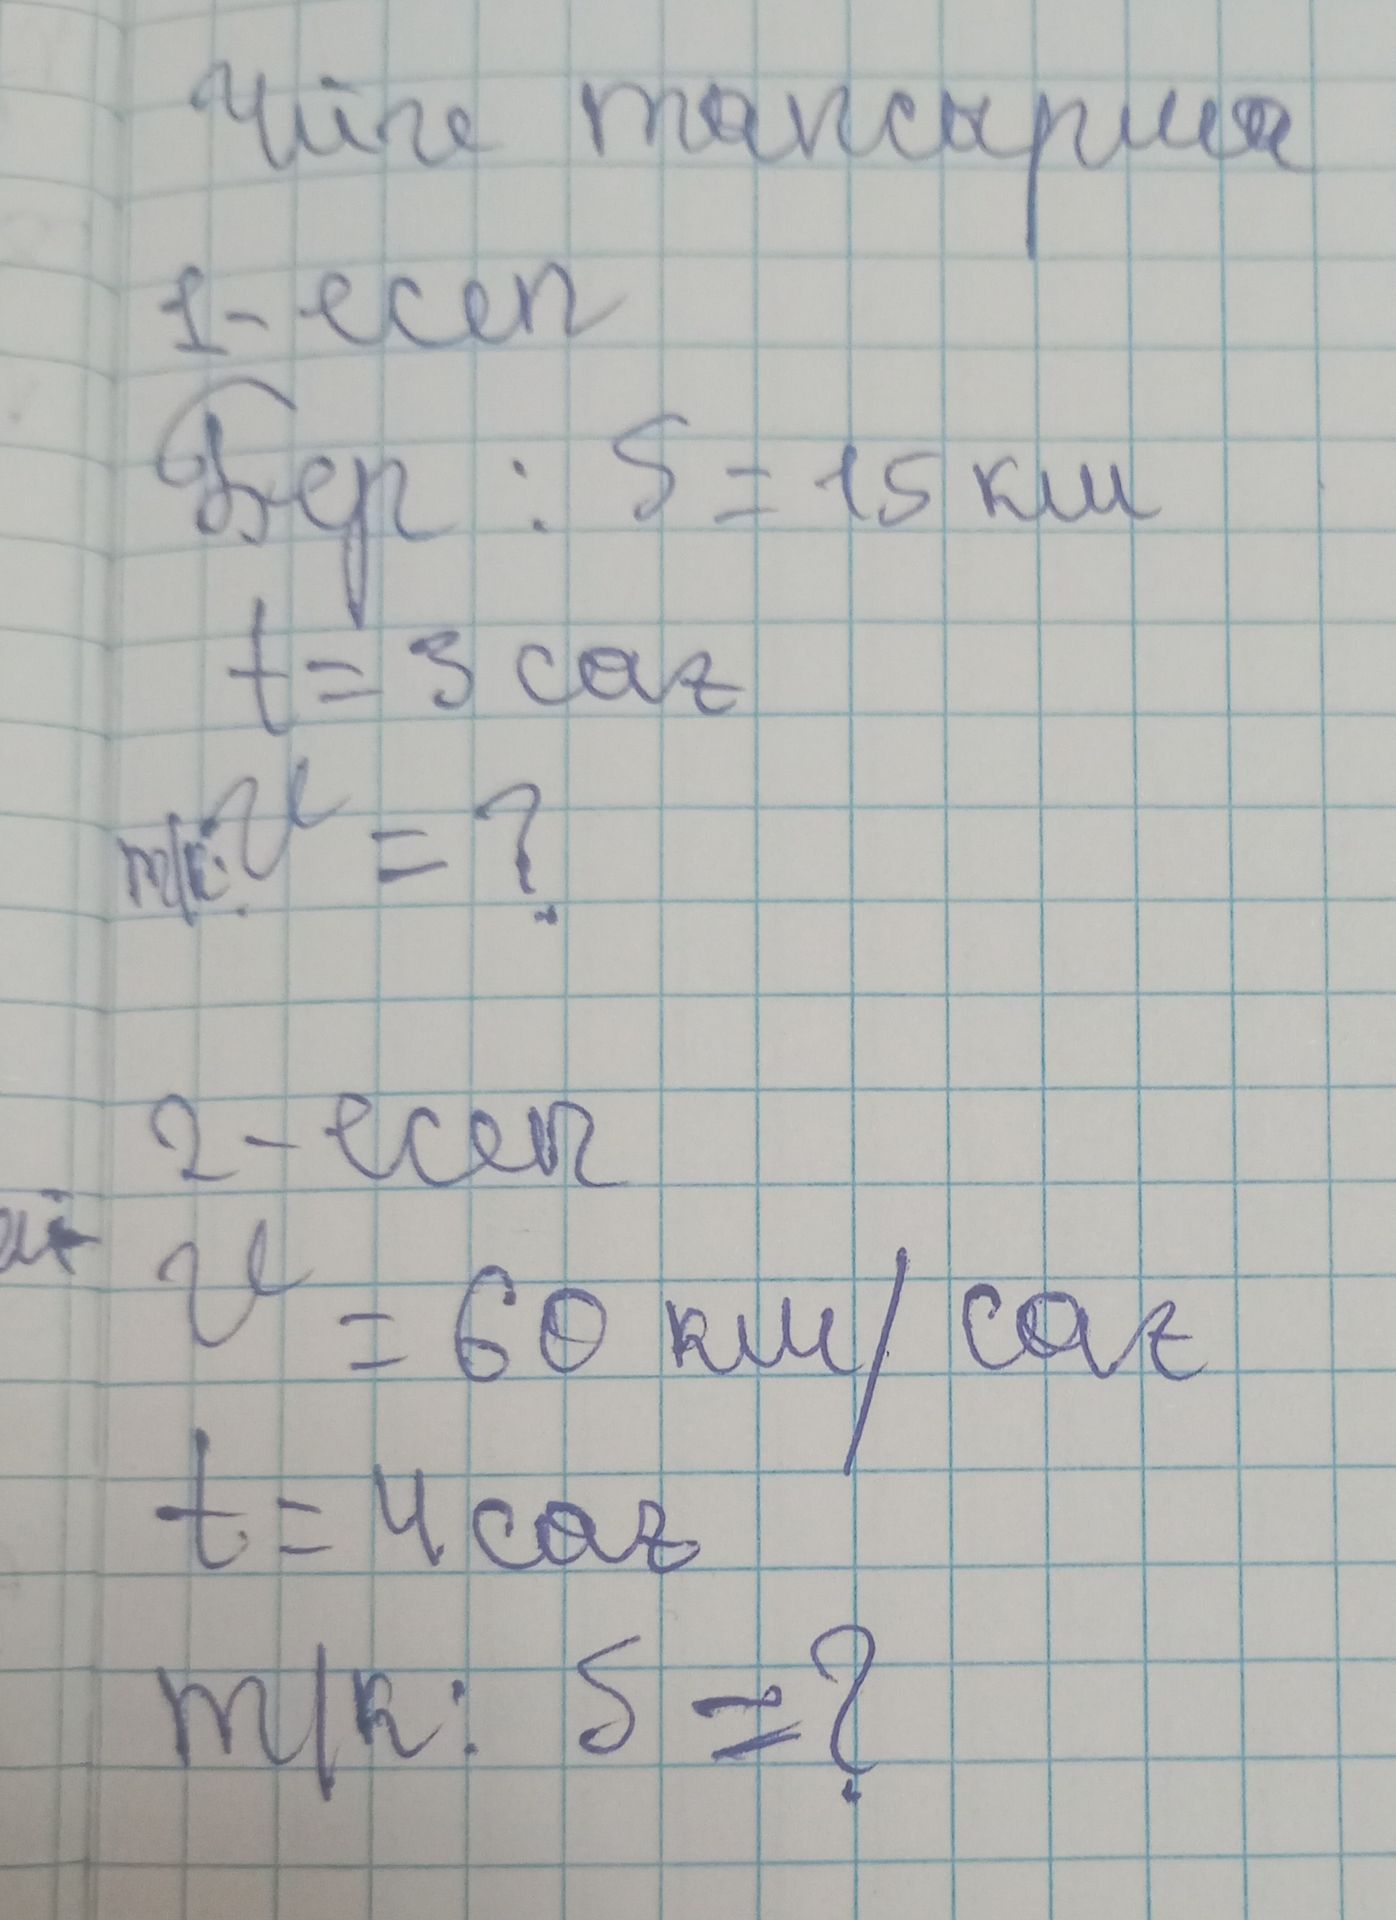 Үйге тапсырма
1-есеп
Бер: S = 15 км
t = 3 саг
т/к: υ = ?
2-есеп
υ = 60 км/саг
t = 4 саг
т/к: S = ?